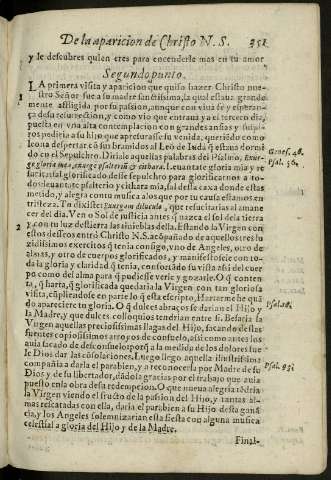 De la aparicion de Christo N. S. 351
y le descubres quien eres para encenderle mas en tu amor
Segundo punto.
LA primera visita y aparicion que quiso hazer Christo nue-
stro Señor fue a su madre santissima, la qual estaua grande
mente afligida por su passion, aunque con viua fe y esperan-
ça de su resurrection, y como vio que entraua ya el tercero dia,
puesta en vna alta contemplacion con grandes ansias y suspi-
ros pediria a su hijo que apressurasse su venida, queriēdo como
leona despertar cō sus bramidos al Leō de Iudà q̄ estaua dormi
do en el Sepulchro. Diriale aquellas palabras del Psalmo, Exur-
ge gloria mea, exurge psalterium & cithara. Leuantate gloria mia y re-
sucita, sal glorificado desse sepulchro para glorificarnos a to-
dos: leuantate psalterio y cithara mia, sal dessa caxa donde estas
metido, y alegra con tu musica a los que por tu causa estamos en
tristeza. Tu dixiste: Exurgam diluculo, que resucitarias al amane
cer del dia. Ven o Sol de justicia antes q̄ nazca el sol de la tierra
y con tu luz destierra las tinieblas della. Estando la Virgen con
estos desseos entrò Christo N.S. acōpañado de aquellos tres lu
zidissimos exercitos q̄ tenia consigo, vno de Angeles, otro de
almas, y otro de cuerpos glorificados, y manifestosele con to-
da la gloria y claridad q̄ tenia, confortādo su vista assi del cuer
po como del alma para q̄ pudiesse verle y gozarle. O q̄ conten-
ta, q̄ harta, q̄ glorificada quedaria la Virgen con tan gloriosa
vista, cūpliendose en parte lo q̄ està escripto, Hartarme he quā
do apareciere tu gloria. O q̄ dulces abraços se darian el Hijo y
la Madre, y que dulces colloquios tendrian entre si. Besaria la
Virgen aquellas preciosissimas llagas del Hijo, sacando destas
fuentes copiosissimos arroyos de consuelo, assi como antes los
auia sacado de desconsuelo: porq̄ a la medida de los dolores sue
le Dios dar las cōsolaciones. Luego llego aquella illustrissima
compañia a darla el parabien, y a reconocerla por Madre de su
Dios y de su libertador, dādola gracias por el trabajo que auia
puesto en la obra desta redempcion. O que nueua alegria tēdria
la Virgen viendo el fructo de la passion del Hijo, y tantas al-
mas rescatadas con ella, daria el parabien a su Hijo desta ganā
cia, y los Angeles solemnizarian esta fiesta con alguna musica
celestial a gloria del Hijo y de la Madre.
Final-
Genes. 49.
Psal. 56.
Psal. 16.
Psal. 93.